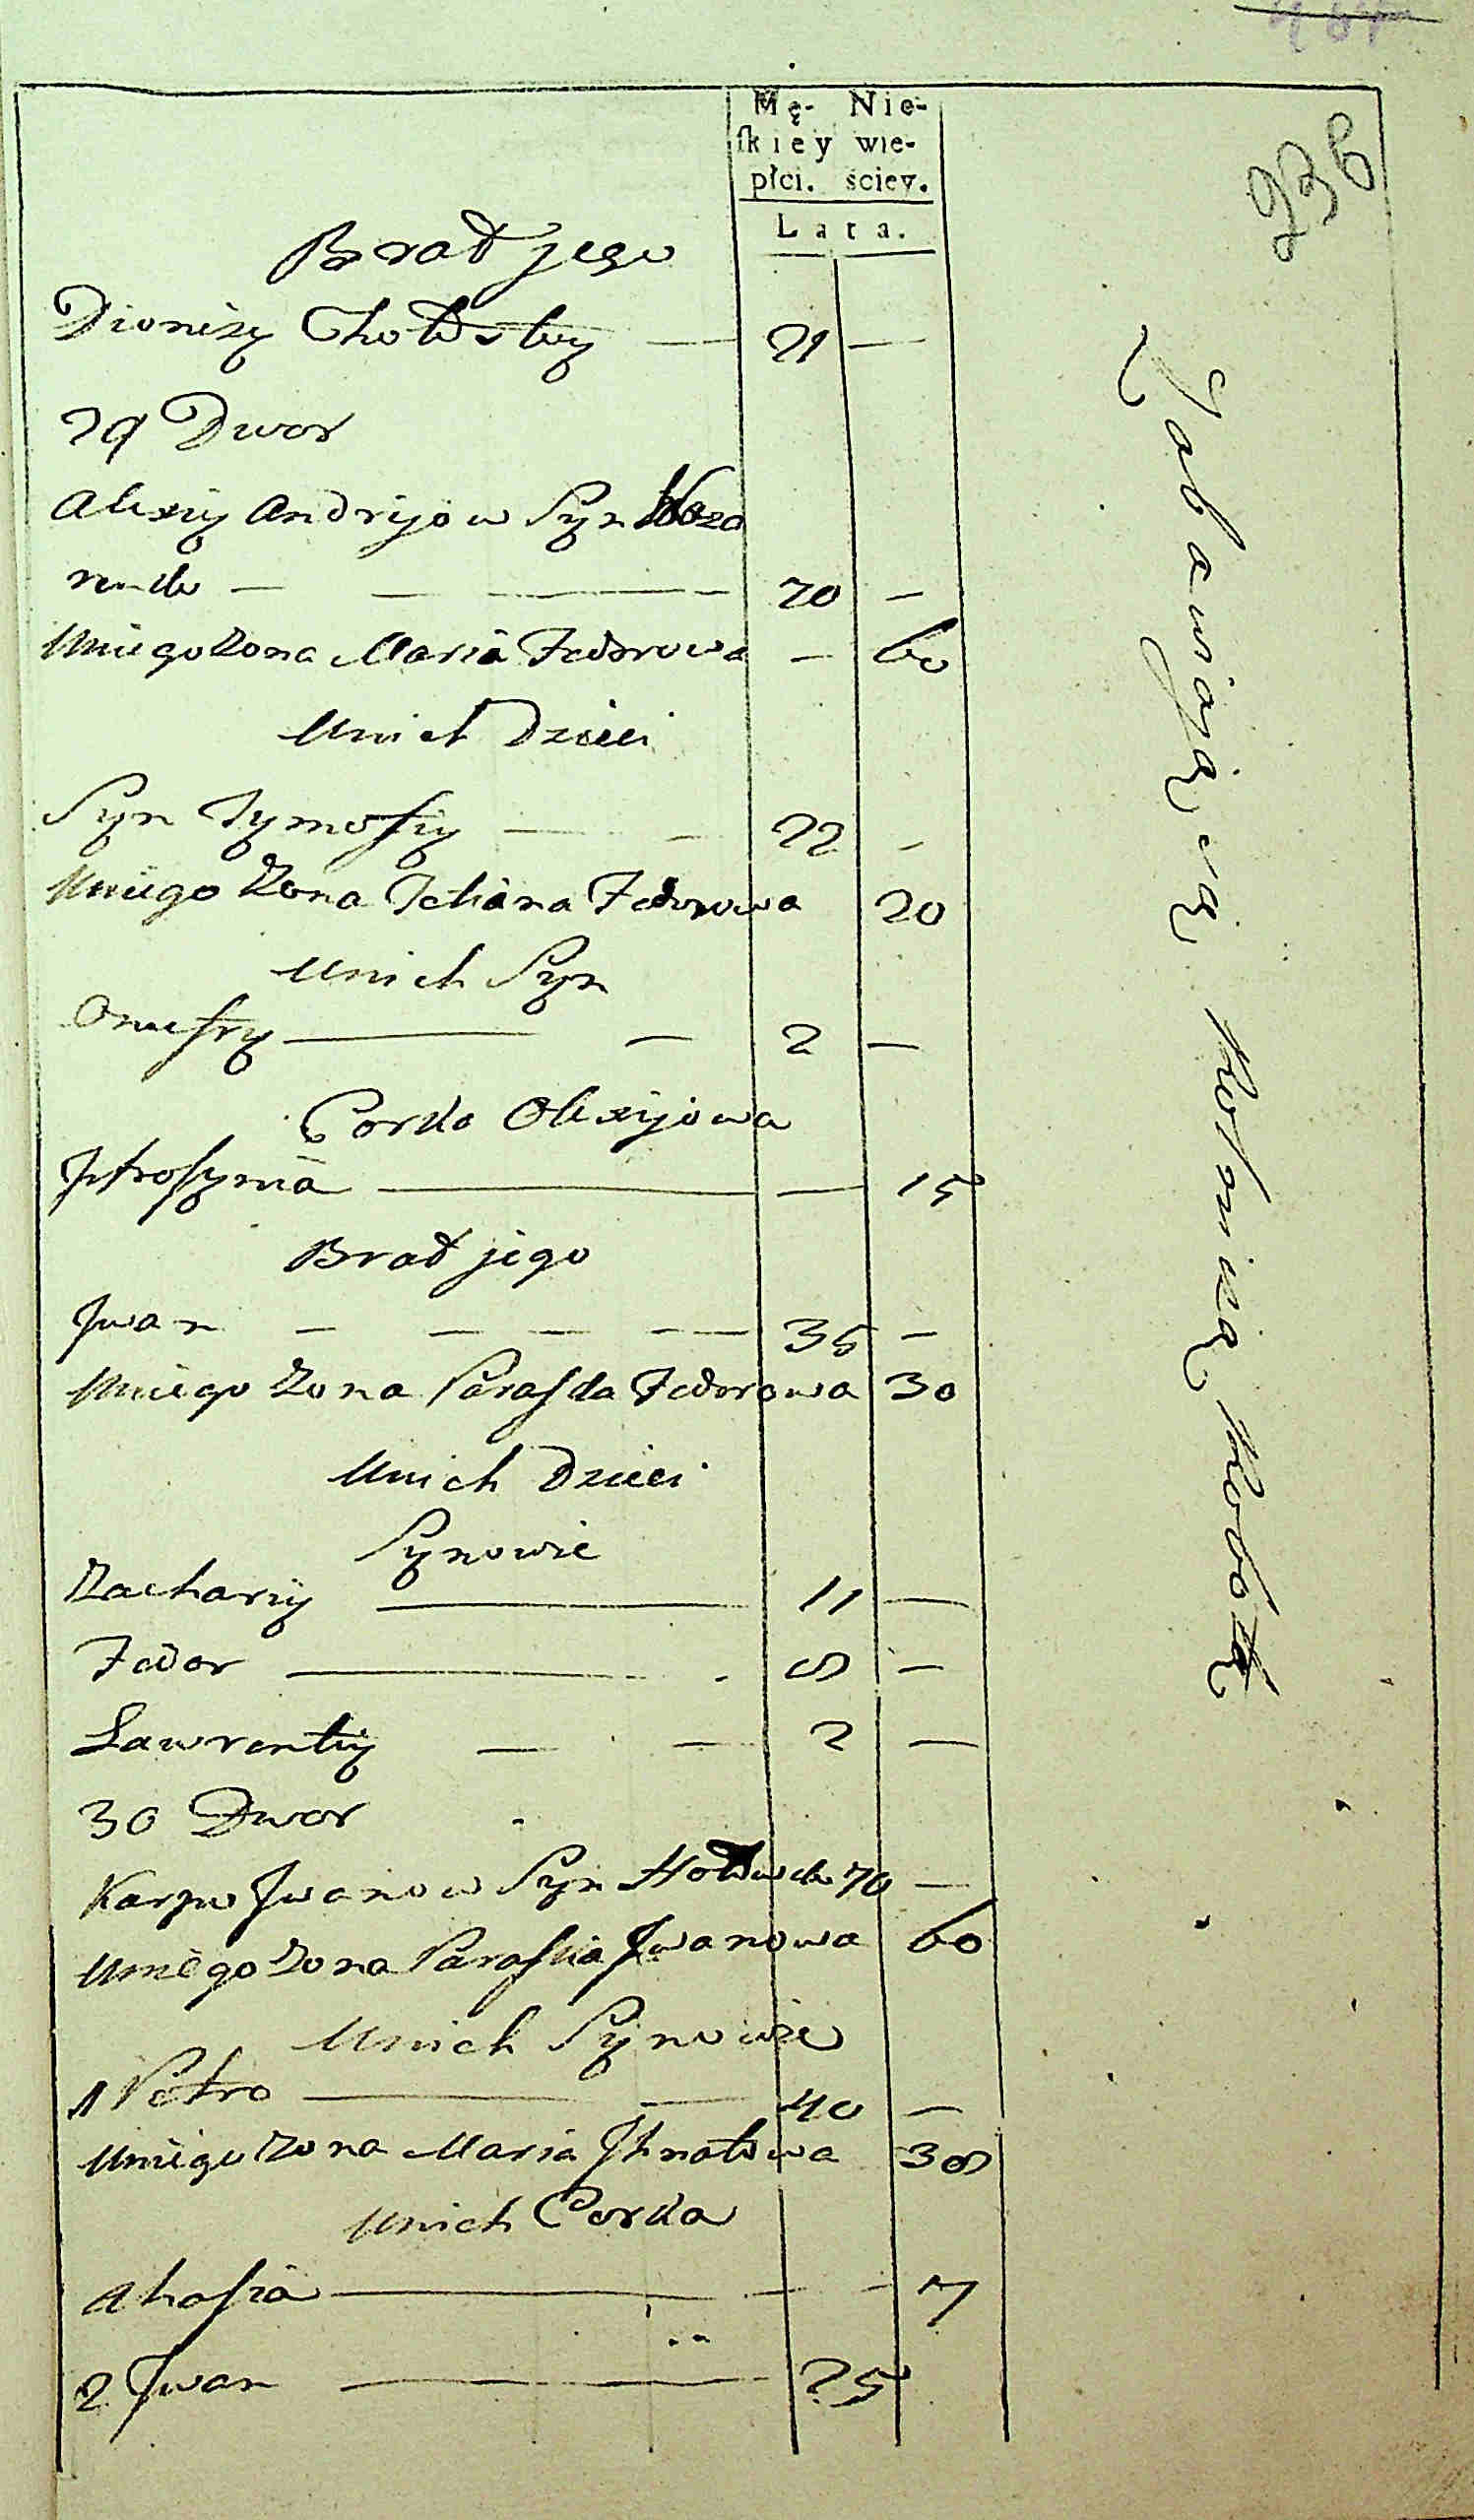 93b
Mę- Nie-
ſkiey wie-
płci. ściey.
Lata.
Brat jego
Dionizy — 21 —
29 Dwor
Alexiy Andryjow Syn
— — — 70 —
Uniego Zona Maria Fedorowa — 60
Unich Dzieci
Syn Tymofiy — — 22 -
Uniego Zona Tetiana Fedorowa 20
Unich Syn
Onufry — — 2 —
Corka Olexijowa
— — 15
Brat jego
Jwan — — — — 35 —
Uniego Zona Paraska Fedorowa 30
Unich Dzieci
Synowie
Zachariy — 11 —
Fedor — 8 —
Lawrentiy — — 2 —
30 Dwor
Karpo Jwanow Syn 70 —
Uniego Zona Paraskia Jwanowa 60
Unich Synowie
1 Petro — — 40 —
Uniego Zona Maria Jhnatowa 38
Unich Corka
Ahafia — - - 7
2 Jwan — 25
Zabawiają się Rolniczą Robotą